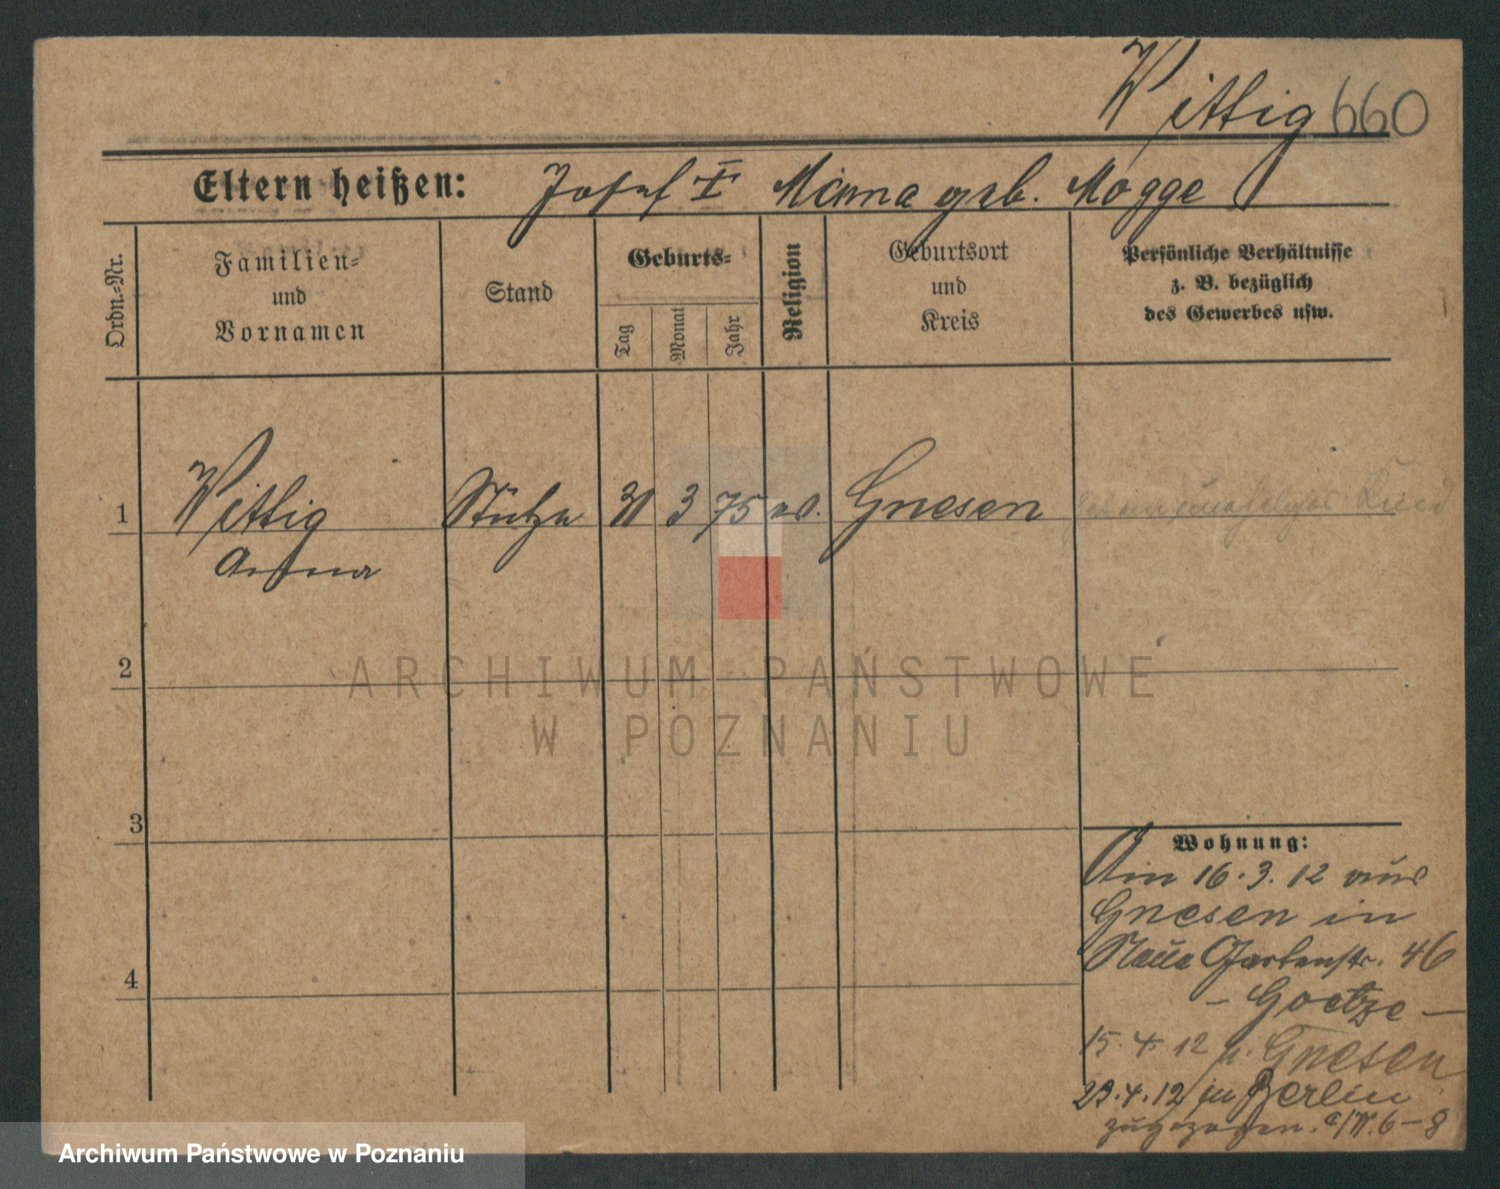 Wittig 660
Eltern heißen: Josef I Minna geb. Mogge
Ordn.=Nr.
Familien=
und
Vornamen
Stand
Geburts=
Tag
Monat
Jahr
Religion
Geburtsort
und
Kreis
Persönliche Verhältnisse
z. B. bezüglich
des Gewerbes usw.
1 Wittig Stütze 31 3 75 ev. Gnesen
Anna
2
3
4
Wohnung:
Am 16.3.12 aus
Gnesen in
Neue Gartenstr. 46
- Goetze -
15.4.12 n. Gnesen
23.4.12 in Berlin
zugezogen. 6-8
ARCHIWUM PAŃSTWOWE
W POZNANIU
Archiwum Państwowe w Poznaniu